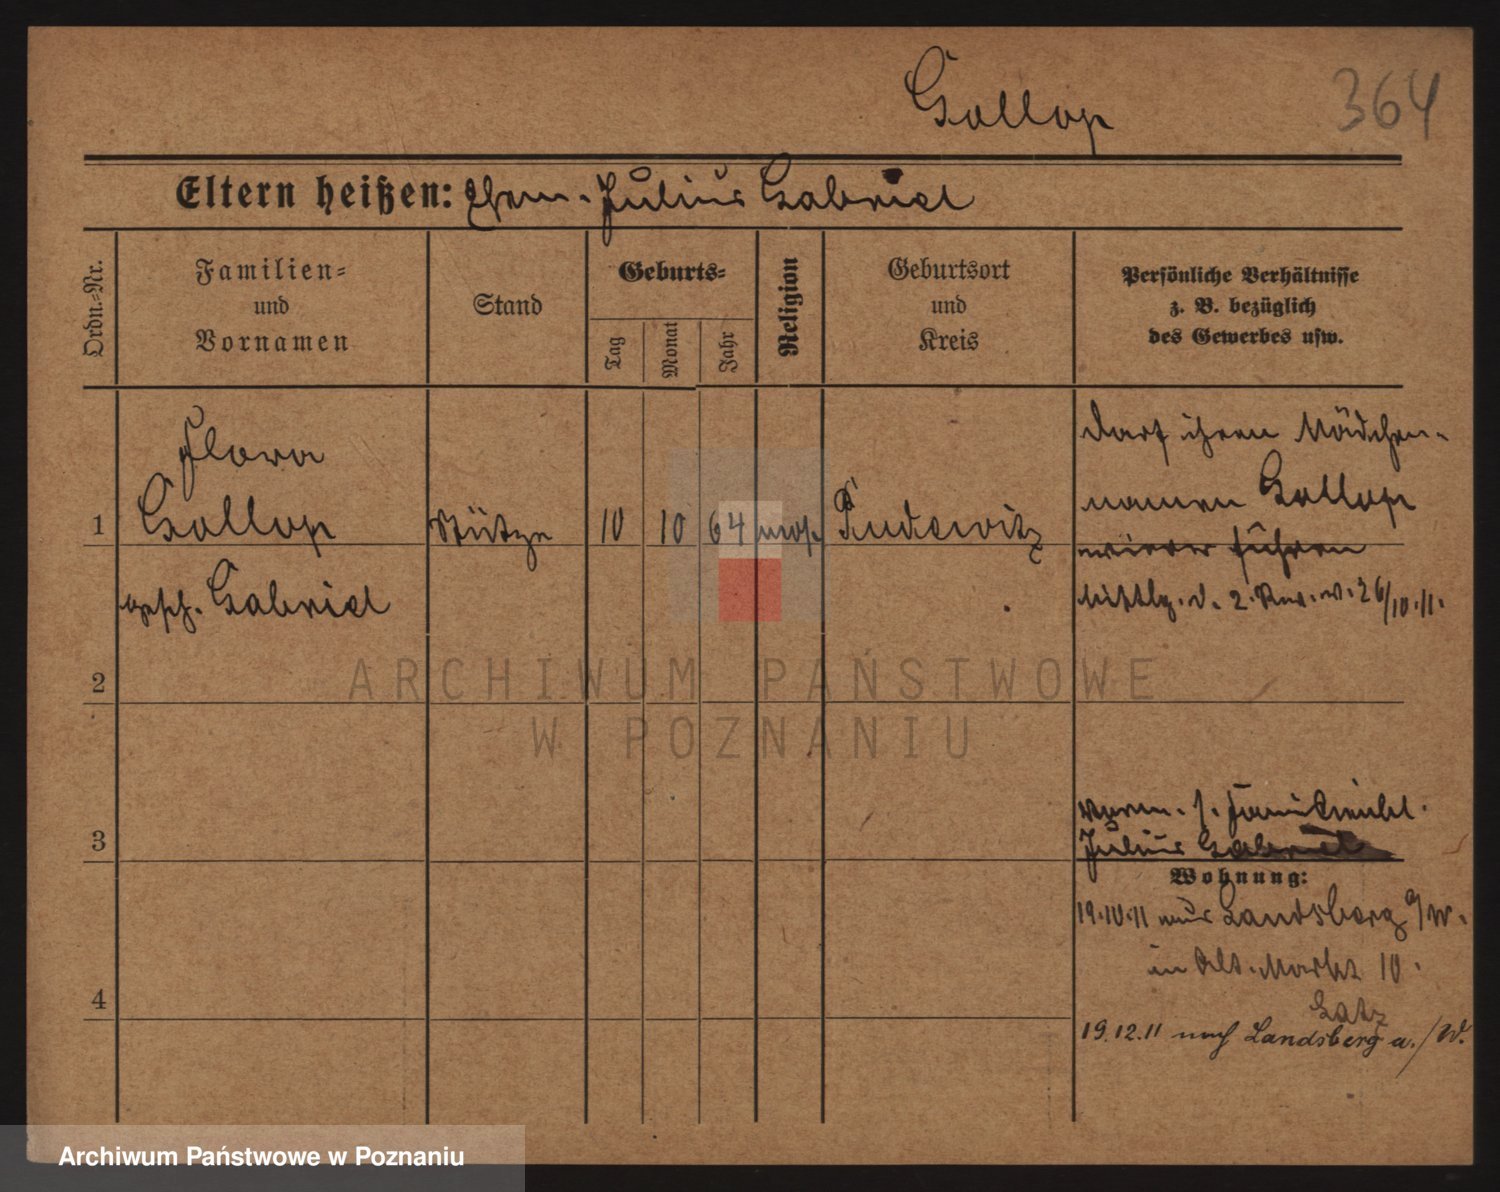 Gollop
364
Eltern heißen: Ehem. Julius Gabriel
Ordn.=Nr.
Familien=
und
Vornamen
Stand
Geburts=
Tag
Monat
Jahr
Religion
Geburtsort
und
Kreis
Persönliche Verhältnisse
z. B. bezüglich
des Gewerbes usw.
Flora
1 Gollop Stütze 10 10 64 mos. Pudewitz
gesch. Gabriel
darf ihren Mädchen-
namen Gollop
wieder führen
d. 2. Rev. v. 26/10.11.
2
3
verm. s.
Julius Gabriel
Wohnung:
19.10.11 aus Landsberg a/W.
in Alt. Markt 10.
4
19.12.11 nach Landsberg a./W.
ARCHIWUM PAŃSTWOWE
W POZNANIU
Archiwum Państwowe w Poznaniu